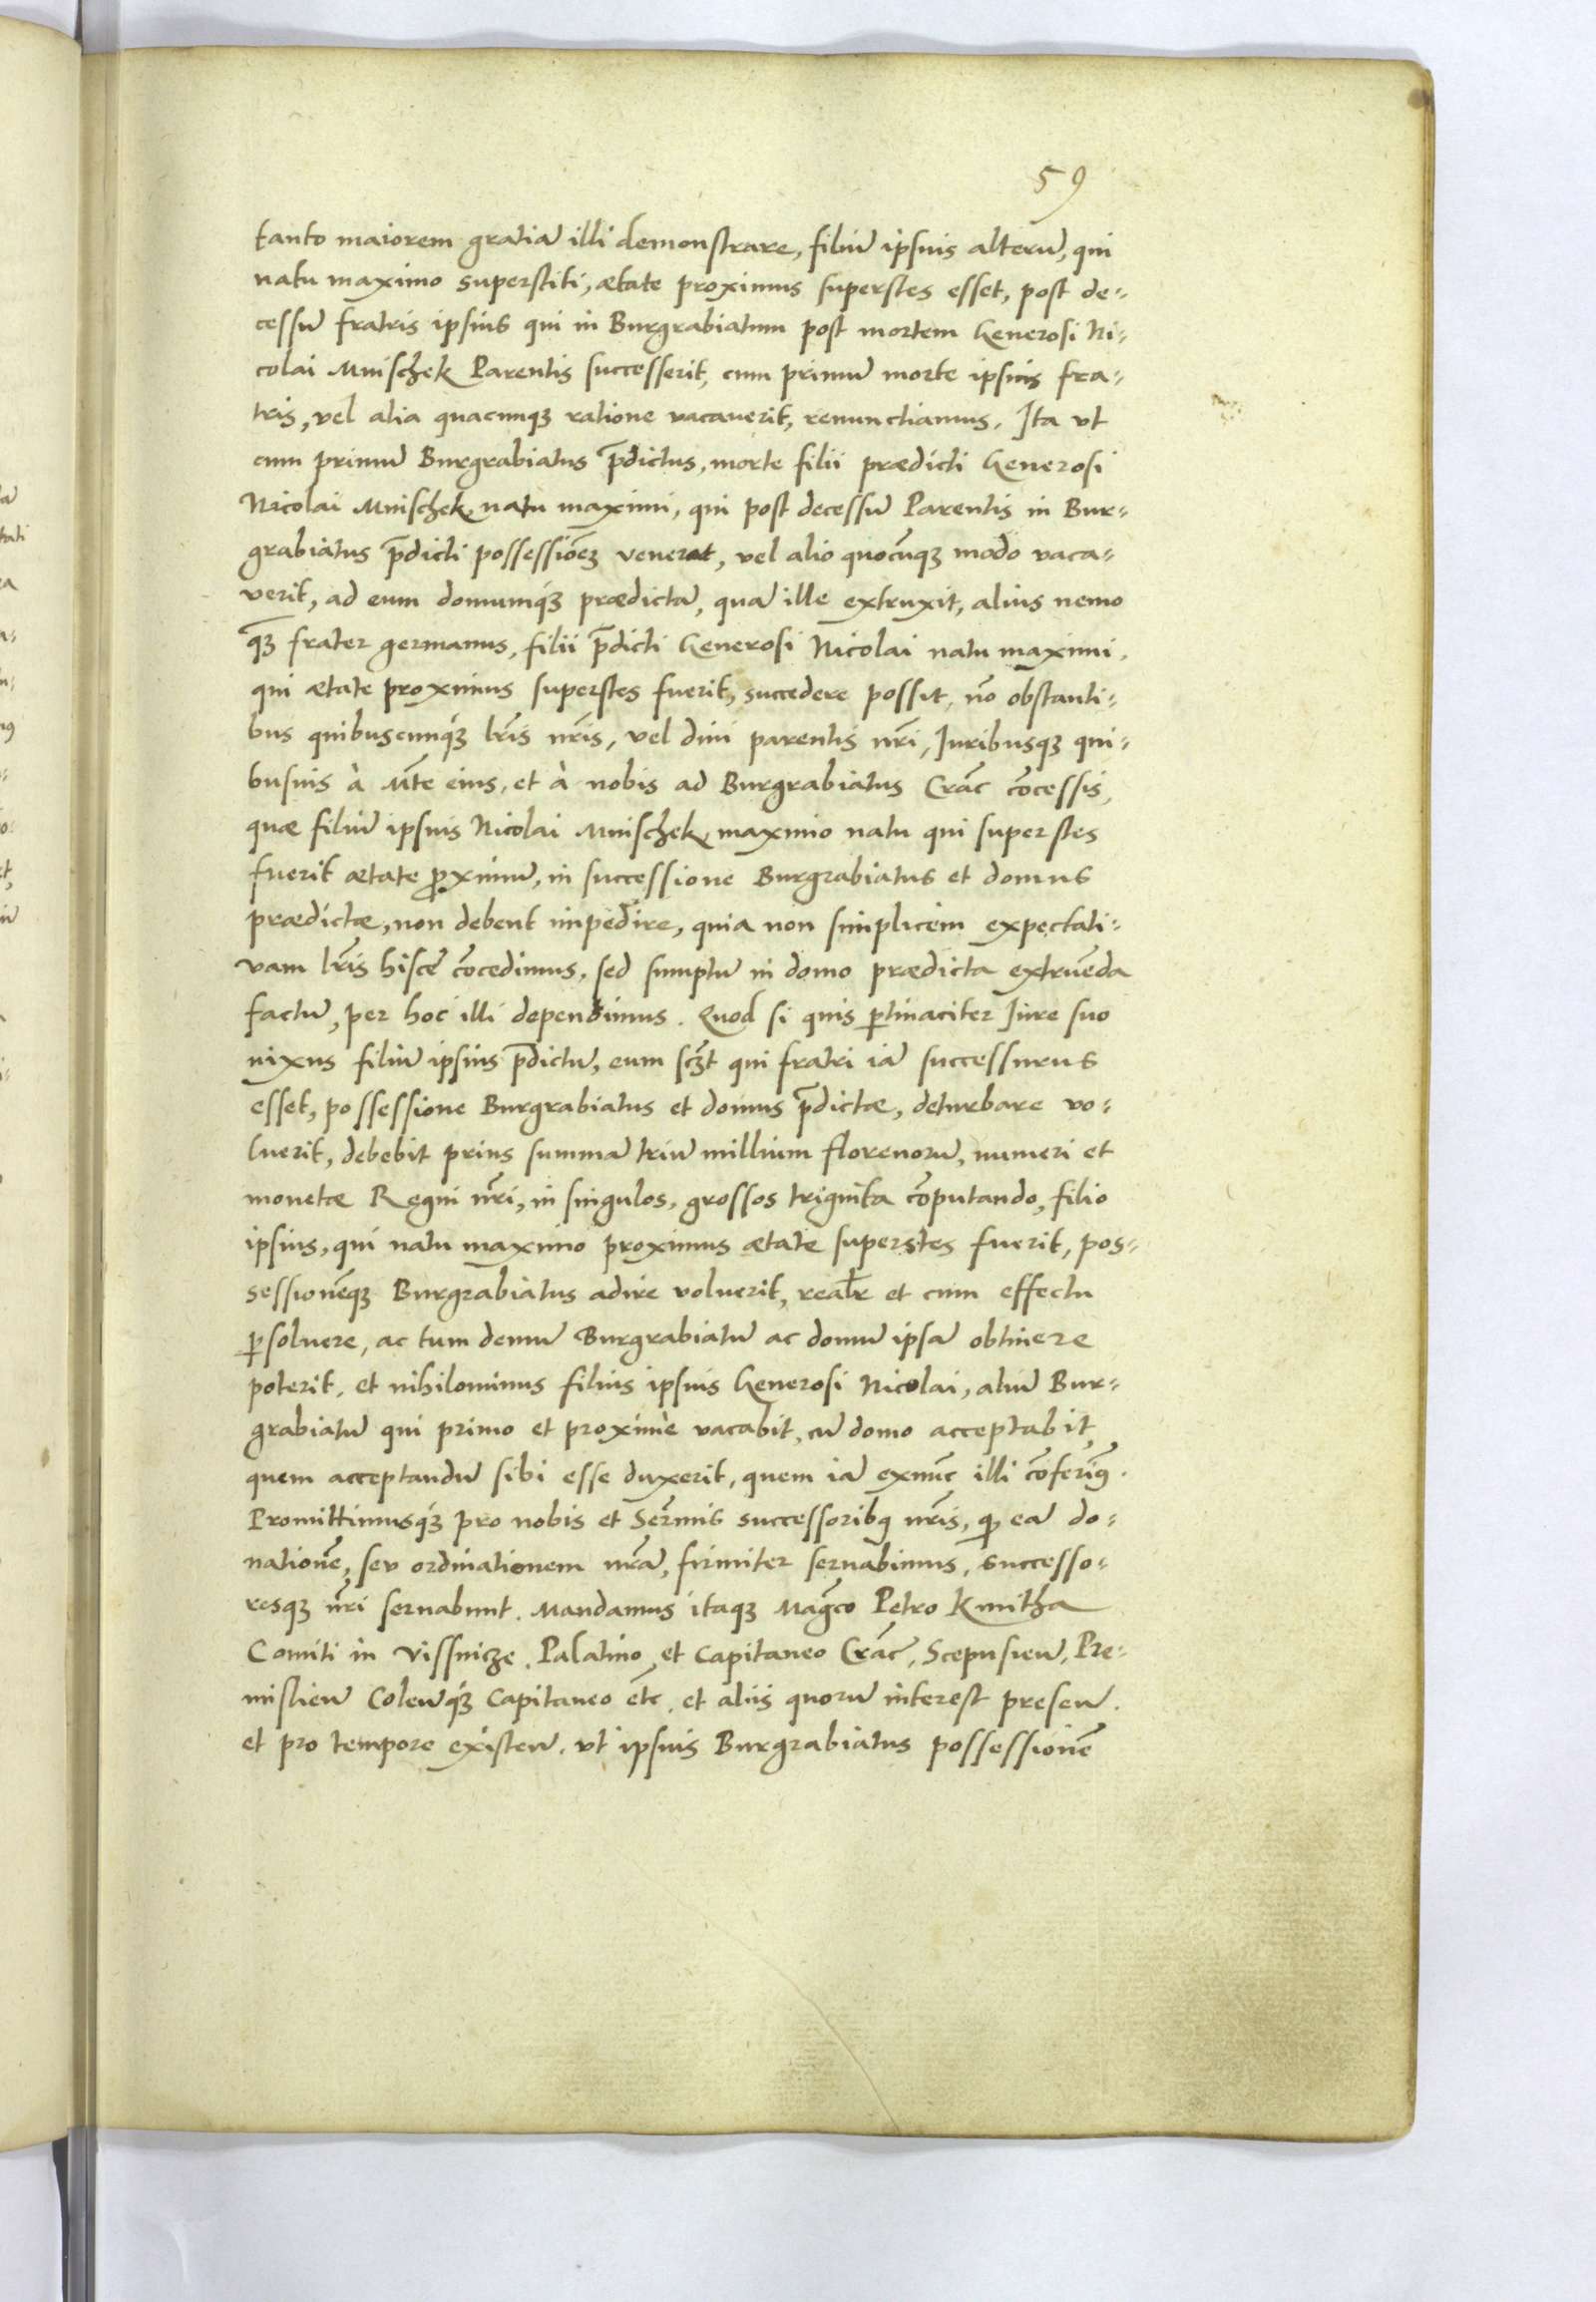 59
tanto maiorem gratiā illi demonstrare, filiū ipsius alterū, qui
natu maximo superstiti, ætate proximus superstes esset, post de-
cessū fratris ipsius qui in Burgrabiatum post mortem Generosi Ni-
colai Mnischek Parentis successerit, cum primū morte ipsius fra-
tris, vel alia quacunqz ratione vacauerit, renunctiamus. Ita vt
cum primū Burgrabiatus p̄dictus, morte filii prædicti Generosi
Nicolai Mnischek natu maximi, qui post decessū Parentis in Bur-
grabiatus p̄dicti possessiōez venerat, vel alio quocūqz modo vaca-
verit, ad eum domumqz prædictā, quā ille extruxit, alius nemo
q̄z frater germanus, filii p̄dicti Generosi Nicolai natu maximi,
qui ætate proximus superstes fuerit, succedere possit, nō obstanti-
bus quibuscunqz lr̄is nr̄is, vel diui parentis nr̄i, Iuribusqz qui-
busuis à Mt̄e eius, et à nobis ad Burgrabiatus Crac̄ cōcessis,
quæ filiū ipsius Nicolai Mnischek maximo natu qui superstes
fuerit ætate p̄ximū, in successione Burgrabiatus et domus
prædictæ, non debent impedire, quia non simplicem expectati-
vam lr̄is hisce cōcedimus, sed sumptū in domo prædicta extruēda
factū, per hoc illi dependimus. Quod si quis p̄tinaciter Iure suo
nixus filiū ipsius p̄dictū, eum sczt qui fratri iā successurus
esset, possessione Burgrabiatus et domus p̄dictæ, deturbare vo-
luerit, debebit prius summā triū millium florenorū, numeri et
monetæ Regni nr̄i, in singulos, grossos triginta cōputando, filio
ipsius, qui natu maximo proximus ætate superstes fuerit, pos-
sessionēqz Burgrabiatus adire voluerit, realr̄ et cum effectu
p̄soluere, ac tum demū Burgrabiatū ac domū ipsā obtinere
poterit, et nihilominus filius ipsius Generosi Nicolai, aliū Bur-
grabiatū qui primo et proximè vacabit, cū domo acceptabit,
quem acceptandū sibi esse duxerit, quem iā exnūc illi cōferimꝯ.
Promittimusqz pro nobis et Ser̄mis successoribꝯ nr̄is, qp eā do-
nationē, seu ordinationem nr̄ā, firmiter seruabimus, successo-
resqz nr̄i seruabunt. Mandamus itaqz Maḡco Petro Kmitha
Comiti in Vissnicze, Palatino, et Capitaneo Crac̄, Scepusieñ, Pre-
mislieñ Coleñqz Capitaneo etc̄, et aliis quorū interest preseñ.
et pro tempore existeñ, vt ipsius Burgrabiatus possessionē